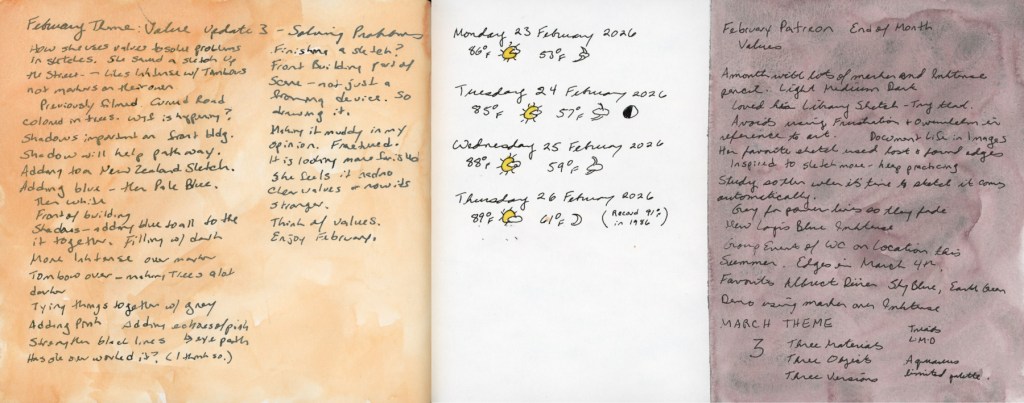 February Theme: Value Update 3 - Solving Problems
How she uses values to solve problems
in sketches. She saved a sketch of
the Street - likes Inktense w/ Tombows
not markers on their own
Previously filmed. Curved Road
colored in trees. W/S is happening?
Shadows important on front bldg.
Shadow will help pathway.
Adding to a New Zealand Sketch.
Adding blue - then Pale Blue.
Then white
Front of building
Shadows - adding blue to all to the
it together. Filling w/ dark
More Inktense over marker
Tombow over - making Trees a lot
darker
Tying things together w/ gray
Adding Pink Adding echoes of pink
Strengthen black lines eye path
Has she over worked it? (I think so.)
Finishing a sketch?
Front Building part of
Scene - not just a
framing device. So
drawing it.
Making it muddy in my
opinion. Fractured.
It is looking more finished
She feels it had no
Clear values & now its
stronger.
Think of values.
Enjoy February.
Monday 23 February 2026
86°F 53°F
Tuesday 24 February 2026
85°F 57°F
Wednesday 25 February 2026
88°F 59°F
Thursday 26 February 2026
89°F 61°F (Record 91° in 1986)
February Patreon End of Month
Values
A month with lots of marker and Inktense
pencil. Light Medium Dark
Loved her Library Sketch - Tiny trend.
Avoids using Frustration & Overwhelm in
reference to art. Document Life in Images
Her favorite sketch used lost & found edges
Inspired to sketch more - keep practicing
Study so then when it's time to sketch it comes
automatically.
Gray for power lines so they fade
New Logo Blue Inktense
Group Event of WC on Location this
Summer. Edges in March 4th.
Favorite Albrecht Dürer Sky Blue, Earth Green
Demo using marker over Inktense
MARCH THEME
3 Three Materials
Three Objects
Three Versions
Triads
L-M-D
Aquarius
limited palette.